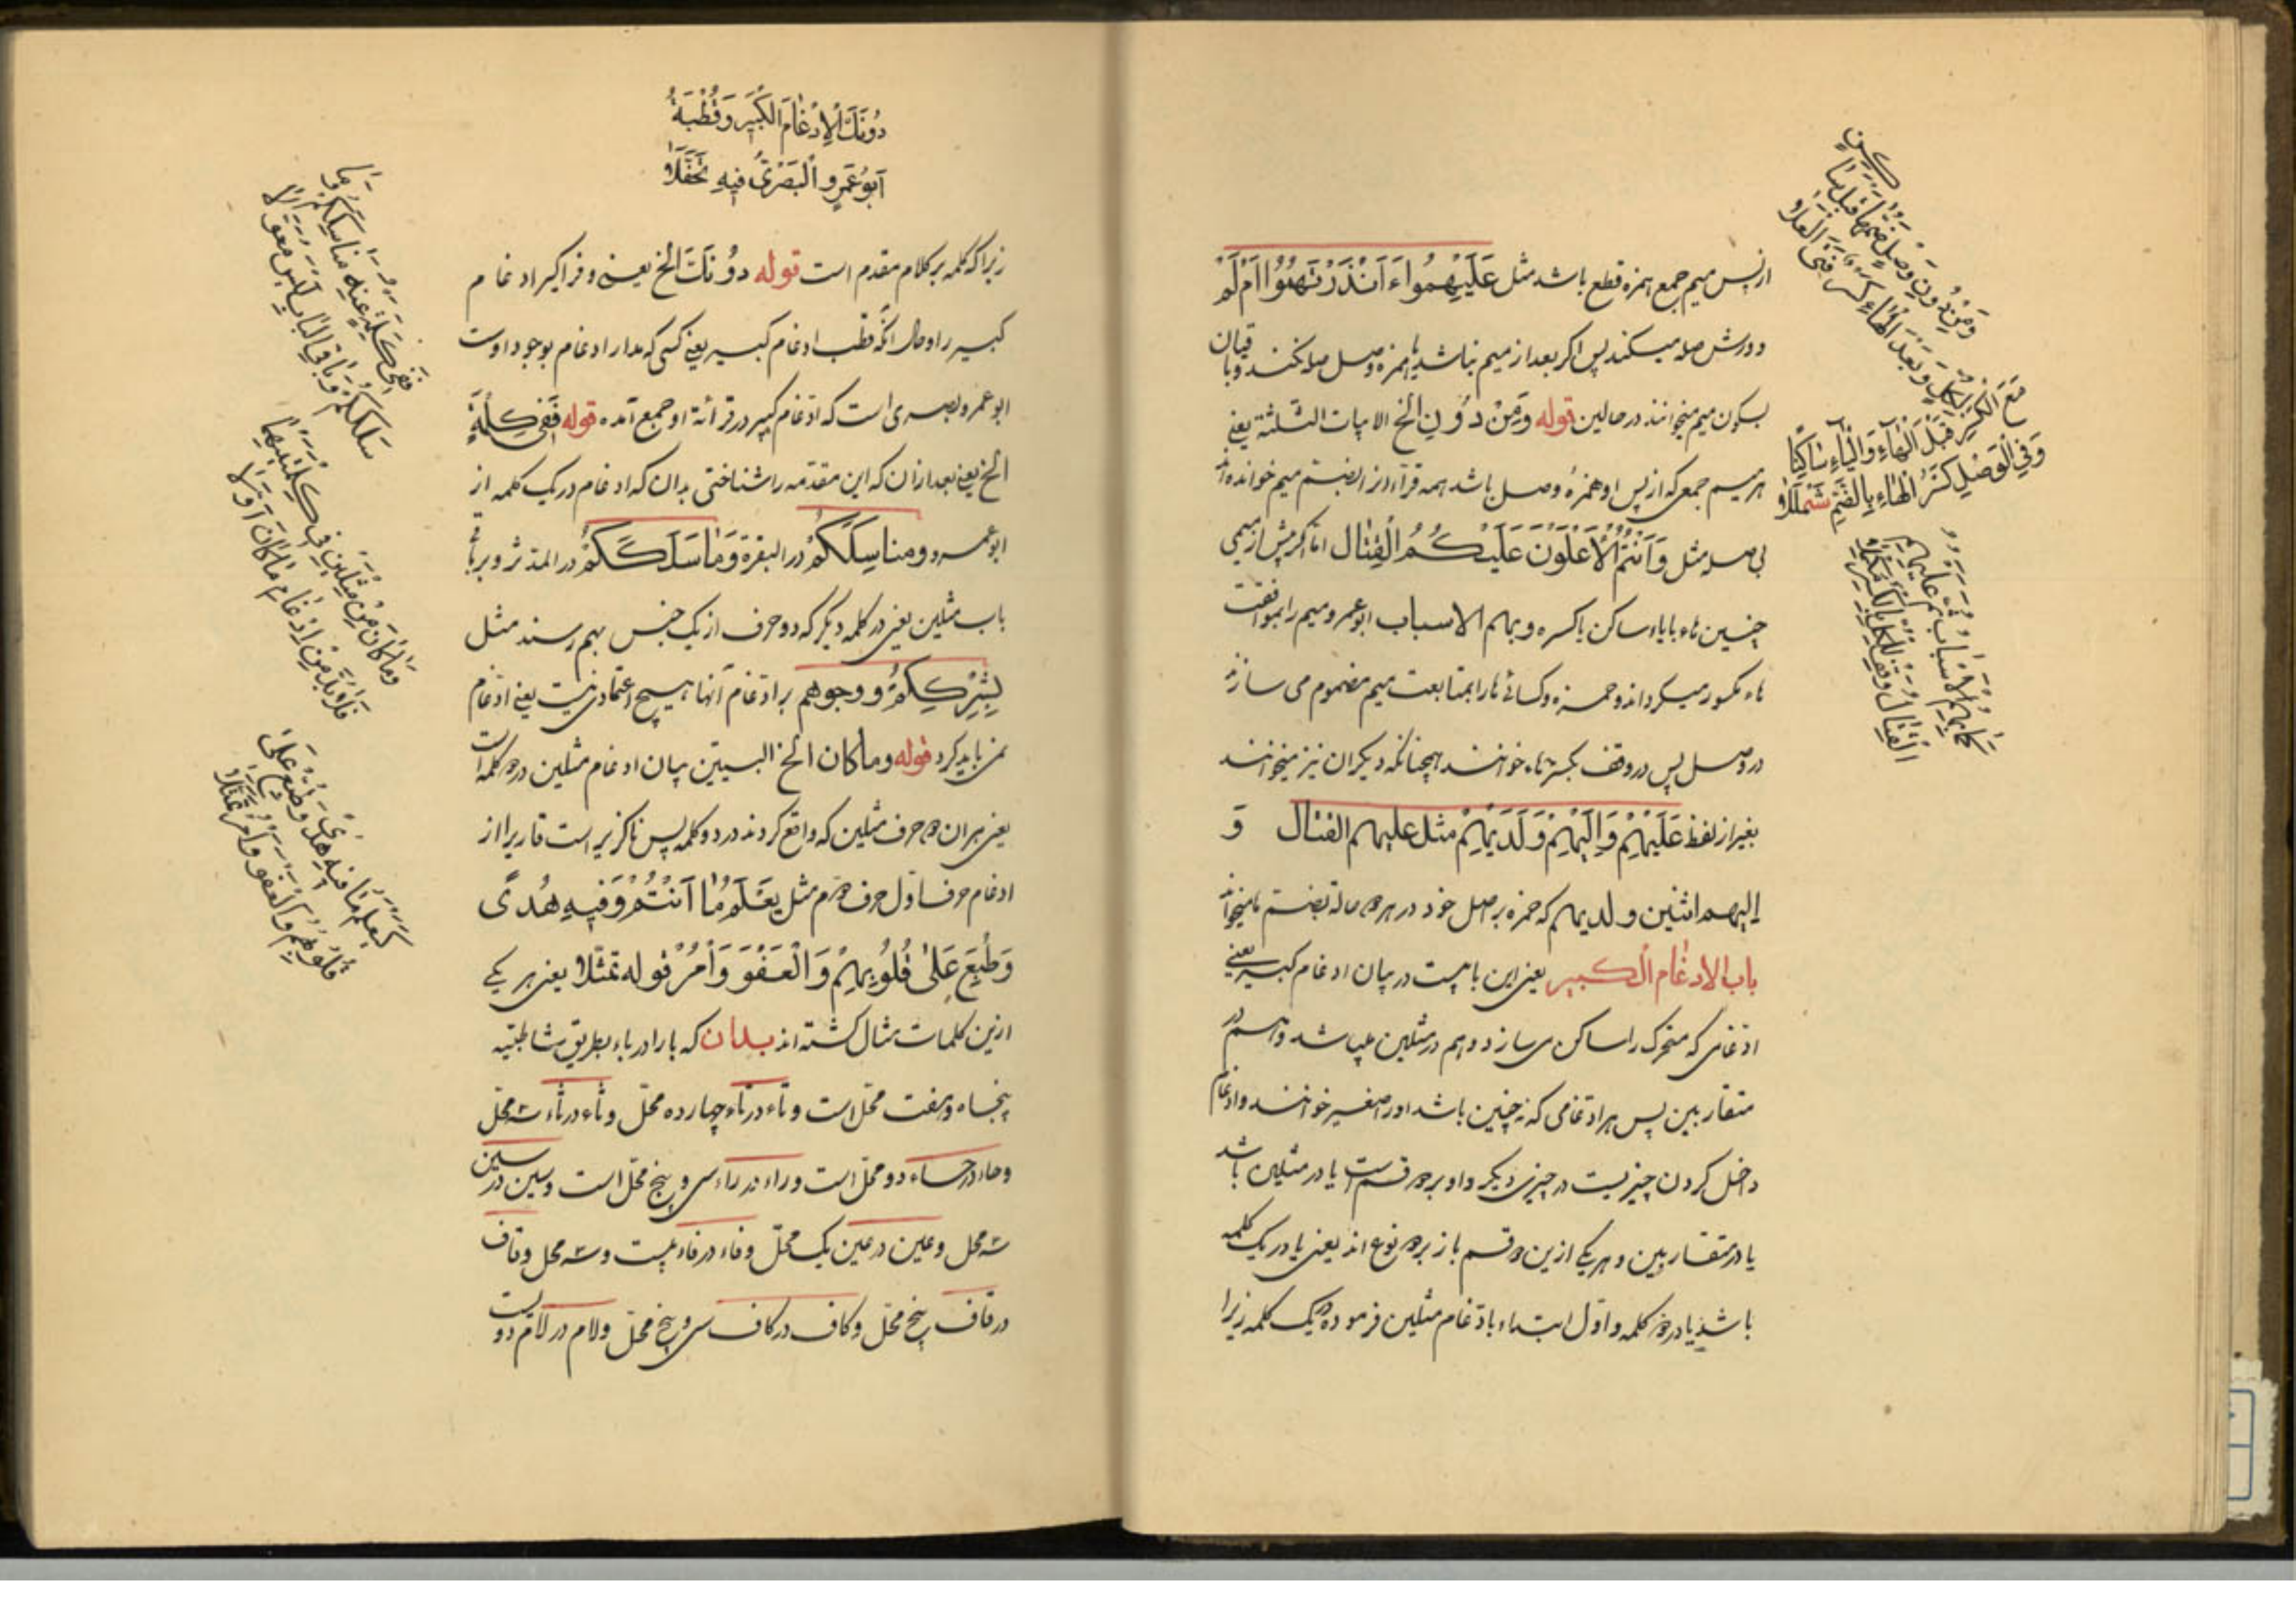 از پس میم جمع همزه قطع باشد مثل عَلَیْهِمُواءَاَنْذَرْتَهُمُوااَمْ لَمْ
و ورش صله میکند پس اکر بعد از میم نباشد یا همزه وصل صله نکند و باقیان
بسکون میم میخوانند در حالین قوله وَمِنْ دُوْنِ الخ الابیات الثلثة یعنی
هر میم جمعی که از پس او همزهٔ وصل باشد همه قراء از بضم میم خوانده‌اند
بی صله مثل وَاَنْتُمُ الْاَعْلَوْنَ عَلَیْکُمُ الْقِتٰال اما اکر پیش از میمی
چنین هاء با یاء ساکن یا کسره و بهم الاسباب ابو عمرو میم را بموافقت
هاء مکسور میکرداند و حمزه و کسائی ها را بمتابعت میم مضموم می سازند
در وصل پس در وقف بکسر هاء خوانند همچنانکه دیکران نیز میخوانند
بغیر از لفظ عَلَیْهِمْ وَاِلَیْهِمْ وَلَدَیْهِمْ مثل علیهم القتال وَ
الیهم اثنین و لدیهم که حمزه بر اصل خود در هر دو حالة بضم ها میخواند
باب الادغام الکبیر یعنی این بابیست در بیان ادغام کبیر یعنی
ادغامی که متحرک را ساکن می سازد و هم در مثلین میباشد و هم در
متقاربین پس هر ادغامی که نه چنین باشد او را صغیر خوانند و ادغام
داخل کردن چیزیست در چیزی دیکر و او بر دو قسم است یا در مثلین باشد
یا در متقاربین و هر یکی ازین دو قسم باز بر دو نوع اند یعنی یا در یک کلمه
باشد یا در دو کلمه و اول ابتداء بادغام مثلین فرموده در یک کلمه زیرا
وَمِنْ دُونِ وَصْلٍ ضُمَّهَا قَبْلَ سَاکِنٍ
لِکُلٍّ وَبَعْدَ الْهَاءِ کَسْرُ فَتَی الْعَلَا
مَعَ الْکَسْرِ قَبْلَ الْهَاءِ وَالْیَاءِ سَاکِنًا
وَفِی الْوَصْلِ کَسْرُ الْهَاءِ بِالضَّمِّ شَمْلَلَا
کَمَا بِهِمُ الْاَسْبَابُ ثُمَّ عَلَیْهِمُ
الْقِتَالُ وَقِفْ لِلْکُلِّ بِالْکَسْرِ مُکْمِلَا
دُونَکَ الْاِدْغَامَ الْکَبِیرَ وَقُطْبُهُ
اَبُو عَمْرٍو الْبَصْرِیُّ فِیهِ تَحَفَّلَا
زیرا که کلمه بر کلام مقدم است قوله دُوْنَکَ الخ یعنی و فراکیر ادغام
کبیر را و حال انکه قطب ادغام کبیر یعنی کسی که مدار ادغام بوجود اوست
ابو عمرو بصری است که ادغام کبیر در قرائة او جمع آمده قوله فَفِی کِلْمَةٍ
الخ یعنی بعد ازان که این مقدمه را شناختی بدان که ادغام در یک کلمه از
ابو عمرو و مناسِکَکُّمْ در البقرة وَمٰا سَلَکَکُّمْ در المدثر و بر باقی
باب مثلین یعنی در کلمه دیکر که دو حرف از یک جنس بهم رسند مثل
بِشِرْکِکُمْ و وجوههم بر ادغام آنها هیچ اعتمادی نیست یعنی ادغام
نمی باید کرد قوله وما کان الخ البیتین بیان ادغام مثلین در دو کلمه است
یعنی هر ان دو حرف مثلین که واقع کردند در دو کلمه پس ناکزیر است قاریرا از
ادغام حرف اول در حرف دوم مثل یَعْلَمُ مٰا اَنْتُمْ وَفِیهِ هُدًی
وَطُبِعَ عَلٰی قُلُوْبِهِمْ وَالْعَفْوَ وَأْمُرْ قوله تمثلا یعنی هر یکی
ازین کلمات مثال کشته اند بدان که با را در باء بطریق شاطبیه
پنجاه و هفت محل است و تاء در تاء چهارده محل و ثاء در ثاء سه محل
و حاء در حاء دو محل است و راء در راء سی و پنج محل است و سین در سین
سه محل و عین در عین یک محل و فاء در فاء بیست و سه محل و قاف
در قاف پنج محل و کاف در کاف سی و پنج محل و لام در لام دویست
فَفِی کِلْمَةٍ عَنْهُ مَنَاسِکَکُمْ وَمَا
سَلَکَکُمْ وَبَاقِی الْبَابِ لَیْسَ مُعَوَّلَا
وَمَا کَانَ مِنْ مِثْلَیْنِ فِی کِلْمَتَیْهِمَا
فَلَا بُدَّ مِنْ اِدْغَامِ مَا کَانَ اَوَّلَا
کَیَعْلَمُ مَا فِیهِ هُدًی وَطُبِعْ عَلَی
قُلُوبِهِمْ وَالْعَفْوَ وَأْمُرْ تَمَثَّلَا